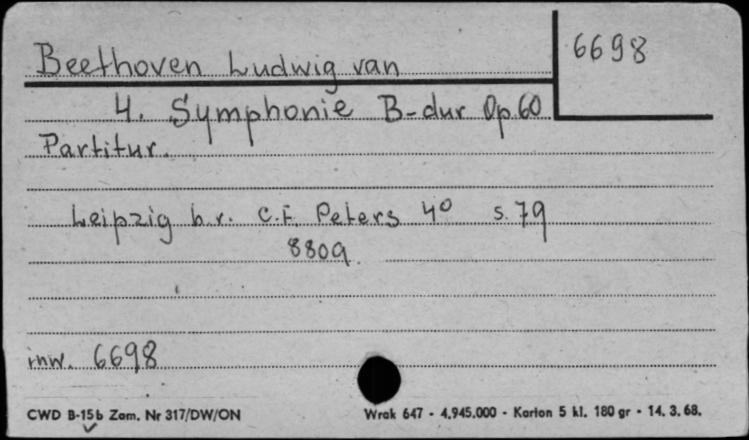 Beethoven Ludwig van
6698
4. Symphonie B-dur Op.60
Partitur.
Leipzig b.r. C.F. Peters 4° s. 79
8809.
inw. 6698
CWD B-15b Zam. Nr 317/DW/ON
Wrak 647 - 4.945.000 - Karton 5 kl. 180 gr - 14. 3. 68.